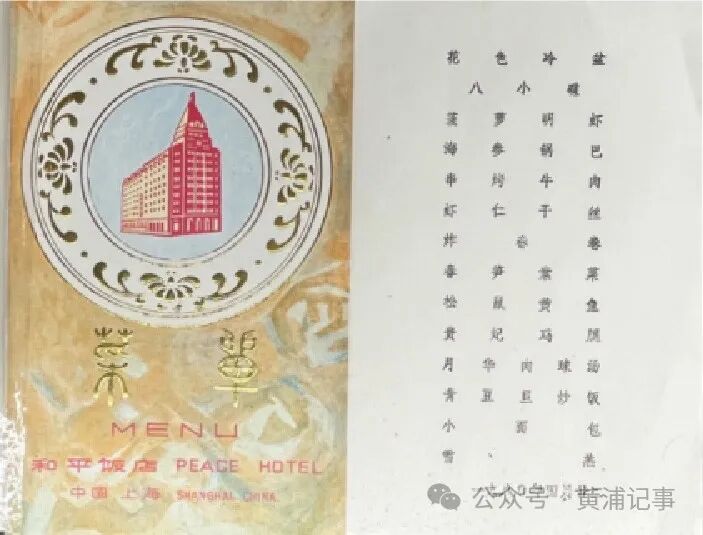 菜單
MENU
和平饭店 PEACE HOTEL
中国 上海 SHANGHAI CHINA
花色冷盆
八小碟
菠萝明虾
海参锅巴
串烤牛肉
虾仁干丝
炸春卷
春笋
松鼠黄鱼
贵妃鸡腿
月华肉球汤
青豆豆炒饭
小面包
雪燕
公众号·黄浦记事